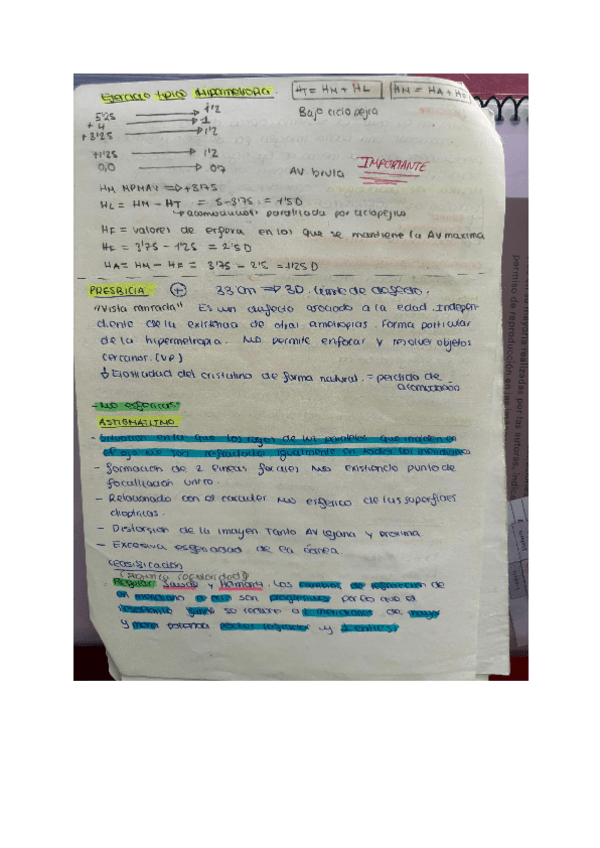 Ejercicio típico Hipermetropía. HT = HM + HL HM = HA + HF
5'25 → 1'2 Bajo cicloplejia
+ 4 → 1
+ 3'25 → 1'2
+1'25 → 1'2
0,0 → 0'7 AV bruta IMPORTANTE
HM MPMAV => +3'75
HL = HM - HT = 5-3'75 = 1'5D
↳ acomodación paralizada por ciclopéjico
HF = valores de esfera en los que se mantiene la AV máxima
HF = 3'75 - 1'25 = 2'5D
HA = HM - HF = 3'75 - 2'5 = 1'25 D
PRESBICIA (+) 33 cm => 3D. límite de
"Vista cansada" Es un defecto asociado a la edad. Indepen-
diente de la existencia de otras ametropías. Forma particular
de la hipermetropía. No permite enfocar y resolver objetos
cercanos. (VP)
↓ Elasticidad del cristalino de forma natural. = perdida de
acomodación
- No esféricas
ASTIGMATISMO
- Situación en la que los rayos de luz paralelos que inciden en
el ojo no son refractados igualmente en todos los meridianos
- formación de 2 líneas focales no existiendo punto de
focalización único.
- Relacionado con el carácter no esférico de las superficies
dioptricas.
- Distorsión de la imagen tanto AV lejana y proxima.
- Excesiva esfericidad de la córnea.
Clasificación
Regular: Los cambios de refracción de
un meridiano a otro son progresivos por lo que el
so 2 meridianos de mayor
y menor potencia
permiso de reproducción en las
mayoría realizadas por las autoras, indic